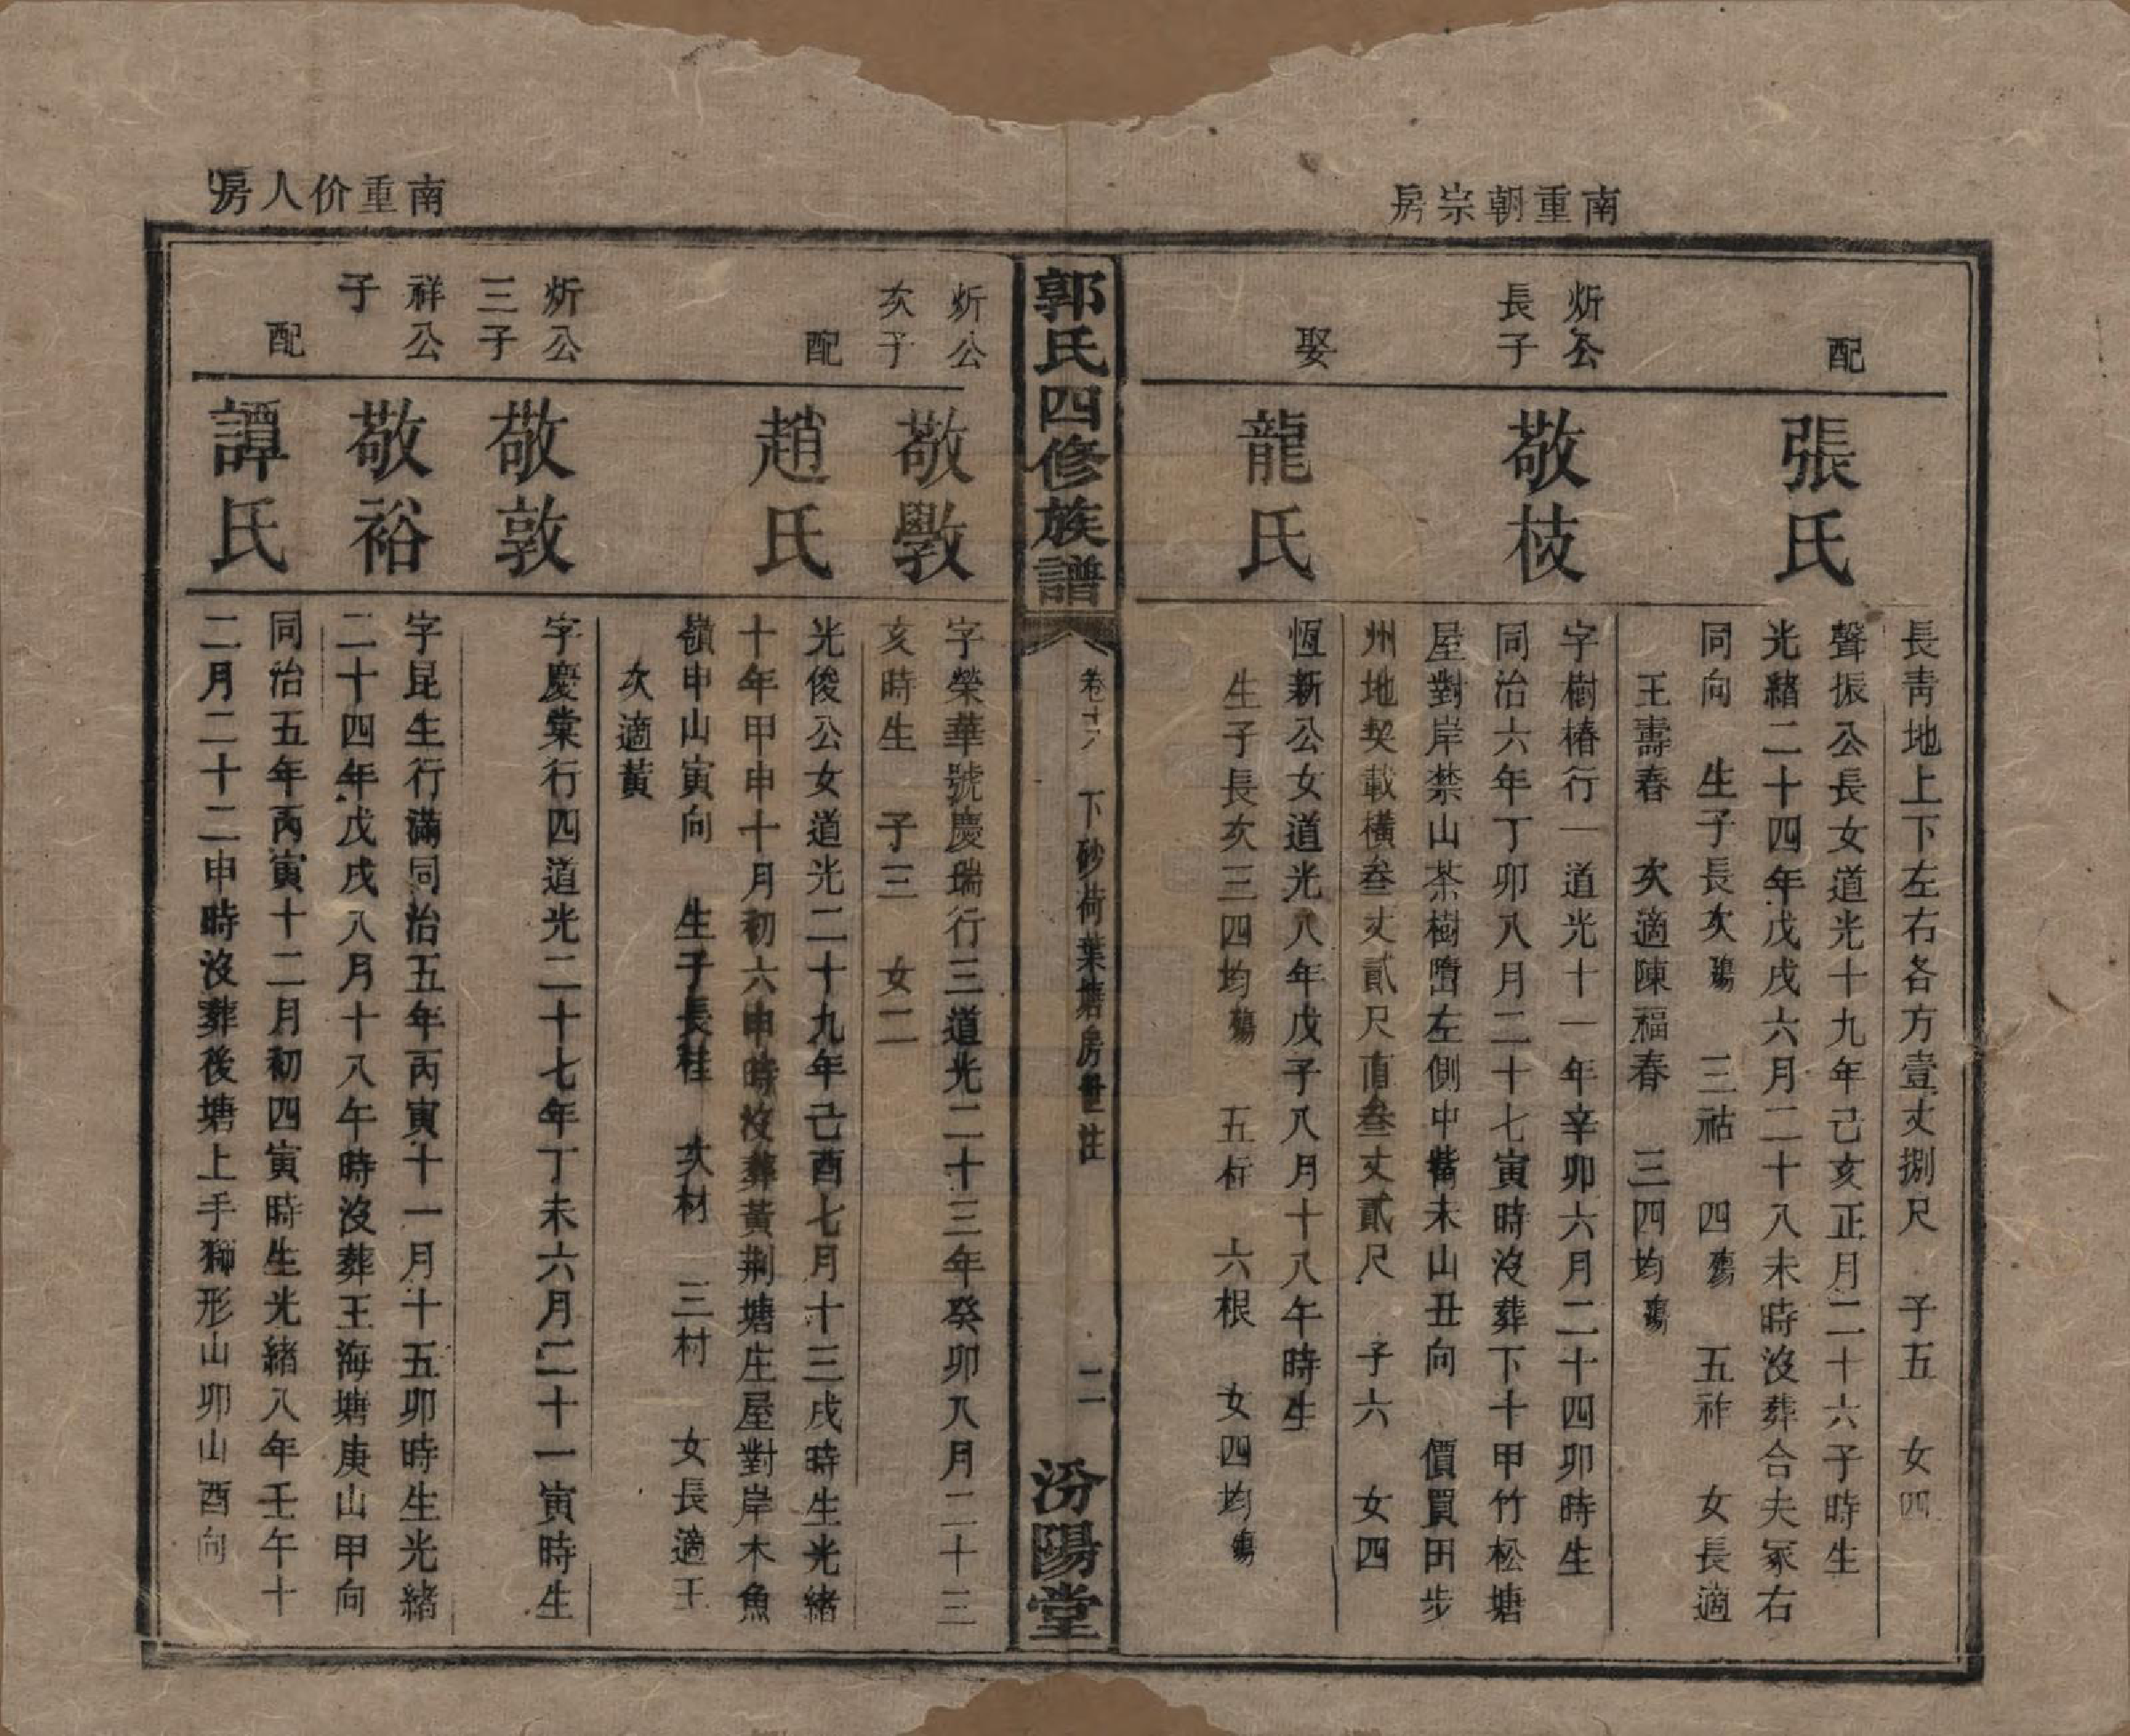 南重朝宗房
長靑地上下左右各方壹丈捌尺 子五 女四
配
張氏
聲振公長女道光十九年己亥正月二十六子時生
光緖二十四年戊戌六月二十八未時沒葬合夫冢右
同向 生子長次殤 三祜 四殤 五祚 女長適
王壽春 次適陳福春 三四均殤
炘公
長子
敬枝
字樹椿行一道光十一年辛卯六月二十四卯時生
同治六年丁卯八月二十七寅時沒葬下十甲竹松塘
屋對岸禁山茶樹𡼏左側中嘴未山丑向 價買田步
州地契載橫叄丈貳尺直叄丈貳尺 子六 女四
娶
龍氏
恆新公女道光八年戊子八月十八午時生
生子長次三四均殤 五析 六根 女四均殤
郭氏四修族譜
卷十八 下砂荷葉塘房世注 二
汾陽堂
南重价人房
炘公
次子
敬斆
字榮華號慶瑞行三道光二十三年癸卯八月二十三
亥時生 子三 女二
配
趙氏
光俊公女道光二十九年己酉七月十三戌時生光緖
十年甲申十月初六申時沒葬黃荆塘庄屋對岸木魚
嶺申山寅向 生子長桂 次材 三村 女長適王
次適黃
炘公
三子
敬敦
字慶棠行四道光二十七年丁未六月二十一寅時生
祥公
子
敬裕
字昆生行滿同治五年丙寅十一月十五卯時生光緖
二十四年戊戌八月十八午時沒葬王海塘庚山甲向
配
譚氏
同治五年丙寅十二月初四寅時生光緖八年壬午十
二月二十二申時沒葬後塘上手獅形山卯山酉向